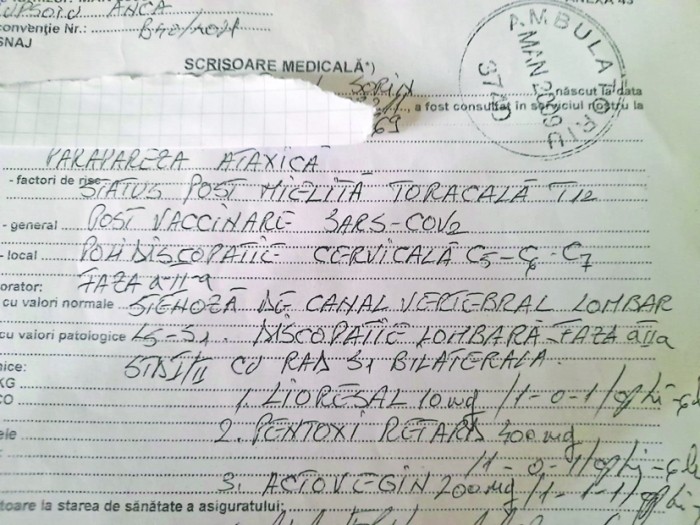 ANCA
convenție Nr.: B40/2021
SNAJ
SCRISOARE MEDICALĂ*)
AMBULATORIU
MAN
3740
SORIN născut la data
, a fost consultat în serviciul nostru la
69
PARAPAREZA ATAXICĂ
- factori de risc STATUS POST MIELITĂ TORACALĂ T12
- general POST VACCINARE SARS-COV2
- local POLIDISCOPATIE CERVICALĂ C5-C6-C7
FAZA a-II-a
orator:
cu valori normale STENOZĂ DE CANAL VERTEBRAL LOMBAR
cu valori patologice L5-S1. DISCOPATIE LOMBARĂ FAZA a IIa
nice: STDI/II CU RAD S1 BILATERALA.
KG
CO 1. LIORESAL 10mg /1-0-1/
ele 2. PENTOXI RETARD 400mg
/1-0-1/
3. ACTOVEGIN 200mg /1-1-1/
toare la starea de sănătate a asiguratului: